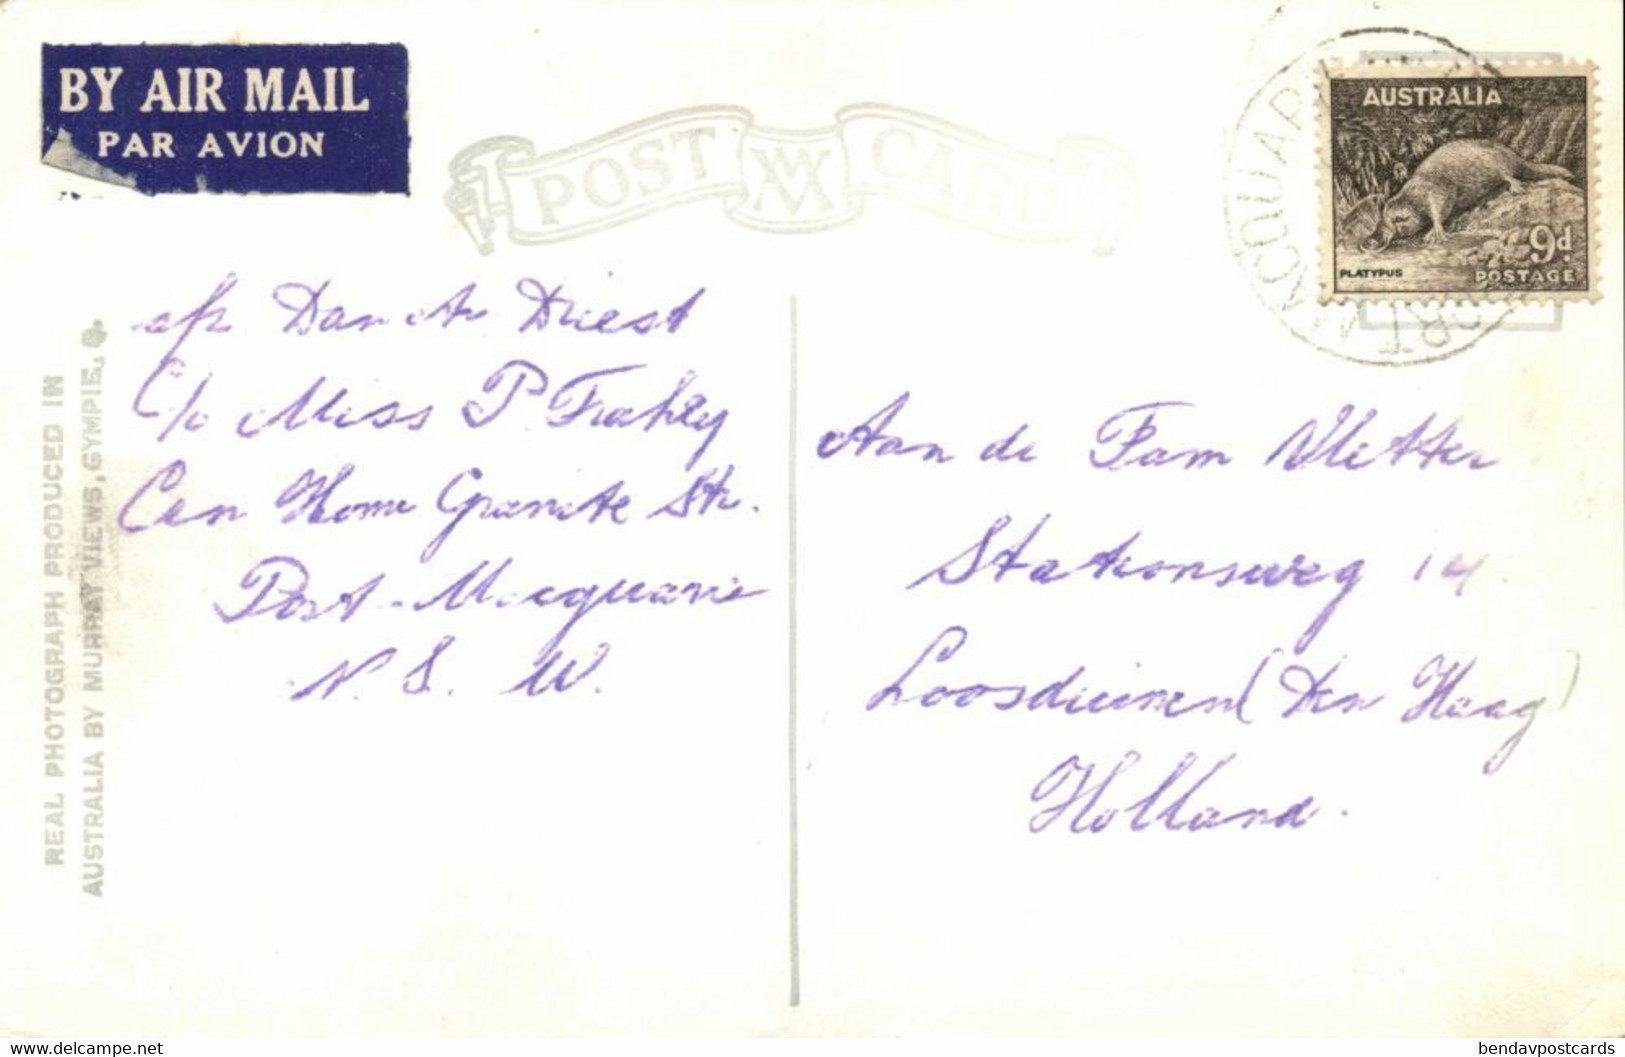 BY AIR MAIL
PAR AVION
POST CARD
AUSTRALIA
PLATYPUS
9d.
POSTAGE
PORT MACQUARIE
C/o Miss P Frahley
Home Granite Str.
Port-Macquarie
N. S. W.
Aan de Fam Vletter
Stationsweg 14
Loosduinen (Den Haag)
Holland.
REAL PHOTOGRAPH PRODUCED IN
AUSTRALIA BY MURRAY VIEWS, GYMPIE, Q.
delcampe.net
bendavpostcards